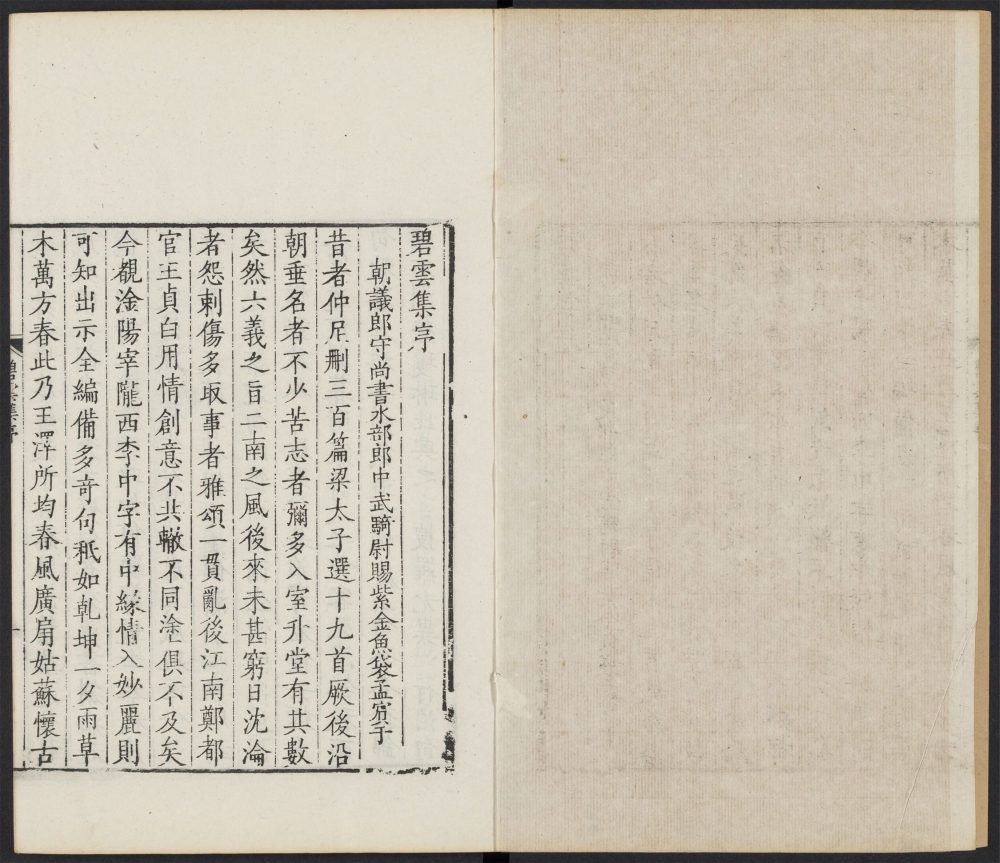 碧雲集序
朝議郎守尚書水部郎中武騎尉賜紫金魚袋孟賔于
昔者仲尼刪三百篇梁太子選十九首厥後沿
朝垂名者不少苦志者彌多入室升堂有其數
矣然六義之旨二南之風後來未甚窮日沈淪
者怨刺傷多取事者雅頌一貫亂後江南鄭都
官王貞白用情創意不共轍不同塗俱不及矣
今覩淦陽宰隴西李中字有中緣情入妙麗則
可知出示全編備多竒句秖如乹坤一夕雨草
木萬方春此乃王澤所均春風廣扇姑蘇懷古
碧雲集序